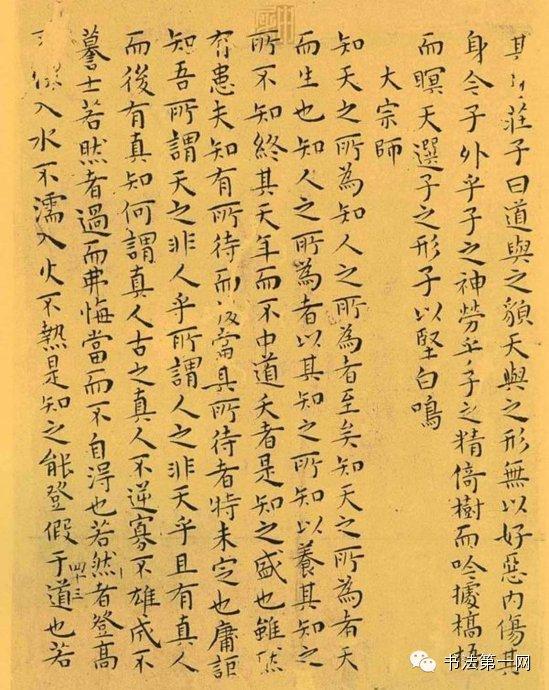 其身莊子曰道與之貌天與之形無以好惡內傷其
身今子外乎子之神勞乎子之精倚樹而吟據槁梧
而瞑天選子之形子以堅白鳴
大宗師
知天之所為知人之所為者至矣知天之所為者天
而生也知人之所為者以其知之所知以養其知之
所不知終其天年而不中道夭者是知之盛也雖然
有患夫知有所待而後當其所待者特未定也庸詎
知吾所謂天之非人乎所謂人之非天乎且有真人
而後有真知何謂真人古之真人不逆寡不雄成不
謩士若然者過而弗悔當而不自得也若然者登高
不慄入水不濡入火不熱是知之能登假于道也若
四十三
书法第一网